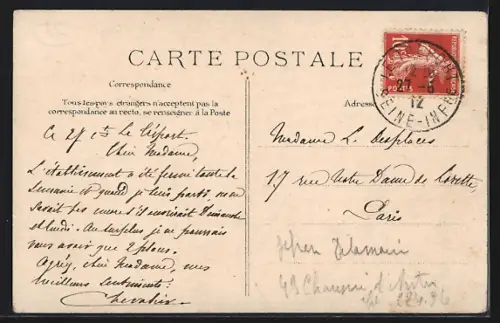 CARTE POSTALE
Correspondance
Tous les pays étrangers n'acceptent pas la
correspondance au recto, se renseigner à la Poste
Adresse
10c
POSTES
27 - 5
12
SEINE-INF
Ce 27 Le Tréport
Chère Madame,
L'établissement a été fermé toute la
semaine et quand je suis parti, on ne
savait pas encore s'il ouvrirait Dimanche
et lundi. Au surplus je ne pourrais
vous avoir que 2 places.
Agréez, chère Madame, mes
meilleurs sentiments.
Chevalier
Madame L. Desplaces
17 rue Notre Dame de Lorette,
Paris
49 Chaussée d'Antin